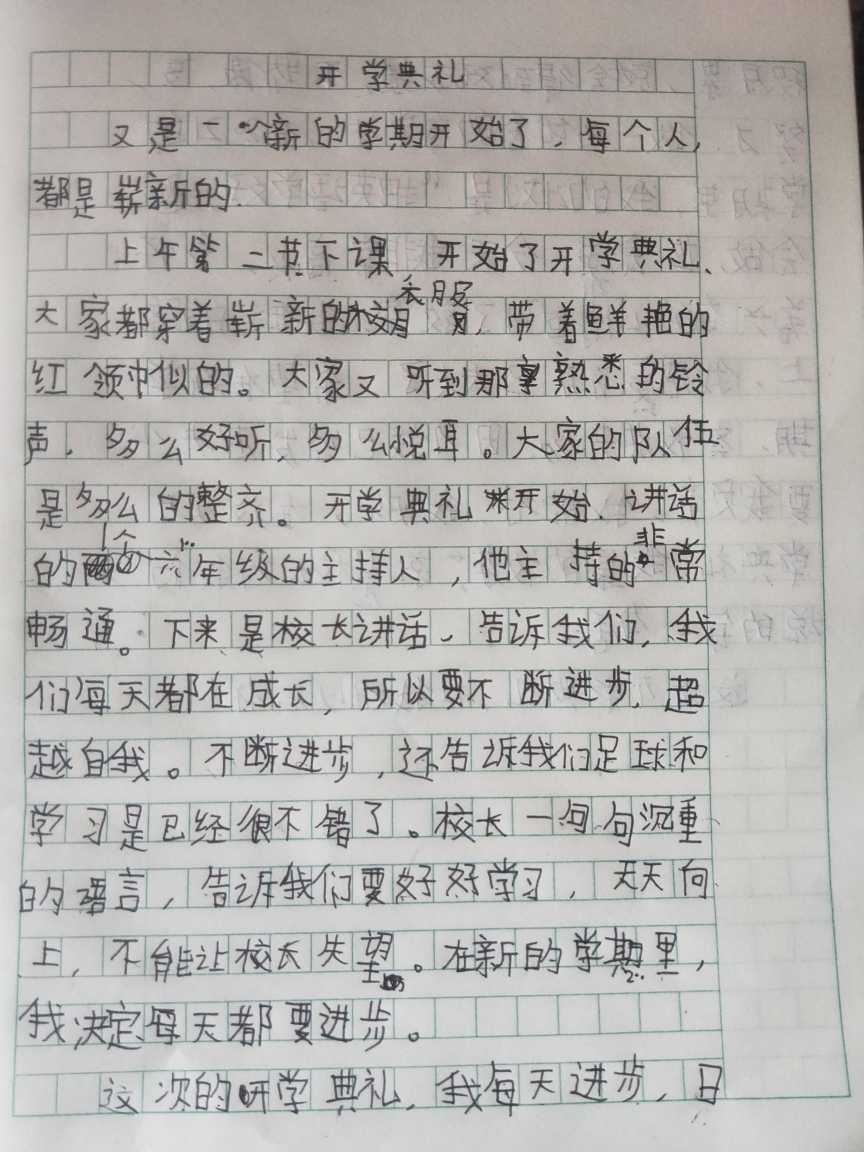 开学典礼
又是一个新的学期开始了，每个人，
都是崭新的.
上午第二节下课 开始了开学典礼、
大家都穿着崭新的校衣服，带着鲜艳的
红领巾似的。大家又听到那熟悉的铃
声，多么好听，多么悦耳。大家的队伍
是多么的整齐。开学典礼开始、讲话
的1个六年级的主持人，他主持的非常
畅通。下来是校长讲话、告诉我们，我
们每天都在成长，所以要不断进步，超
越自我。不断进步，还告诉我们足球和
学习是已经很不错了。校长一句句沉重
的语言，告诉我们要好好学习，天天向
上，不能让校长失望。在新的学期里，
我决定每天都要进步。
这次的开学典礼，我每天进步，日